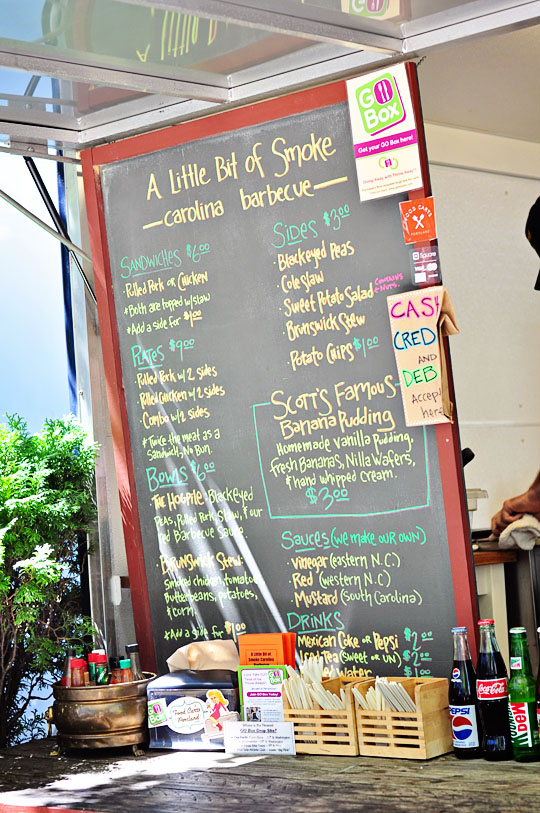 A Little Bit of Smoke
carolina barbecue
SANDWICHES $6.00
Pulled Pork or Chicken
*Both are topped w/slaw
*Add a side for $1.00
PLATES $9.00
Pulled Pork w/ 2 sides
Pulled Chicken w/ 2 sides
Combo w/ 2 sides
*Twice the meat as a
Sandwich, No Bun.
BOWLS $6.00
The Hogpile - Blackeyed
Peas, Pulled Pork, Slaw, & our
Red Barbecue Sauce.
Brunswick Stew:
Smoked chicken, tomatoes,
Butterbeans, potatoes,
& corn.
*Add a side for $1.00
SIDES $3.00
Blackeyed Peas
Cole Slaw
Sweet Potato Salad *Contains Nuts.
Brunswick Stew
Potato Chips $1.00
Scott's Famous
Banana Pudding
Homemade Vanilla Pudding,
Fresh Bananas, Nilla Wafers,
& hand whipped cream.
$3.00
SAUCES (we make our own)
Vinegar (eastern N.C.)
Red (western N.C.)
Mustard (South Carolina)
DRINKS
Mexican Coke or Pepsi $2.00
Iced Tea (Sweet or UN) $2.00
Water
GO
Box
Get your GO Box here!
FOOD CARTS
PORTLAND
Square
CAS
CRED
AND
DEB
accep
here
A Little Bit of
Smoke Carolina
Food Carts
Portland
GO
Box
PEPSI
Coca-Cola